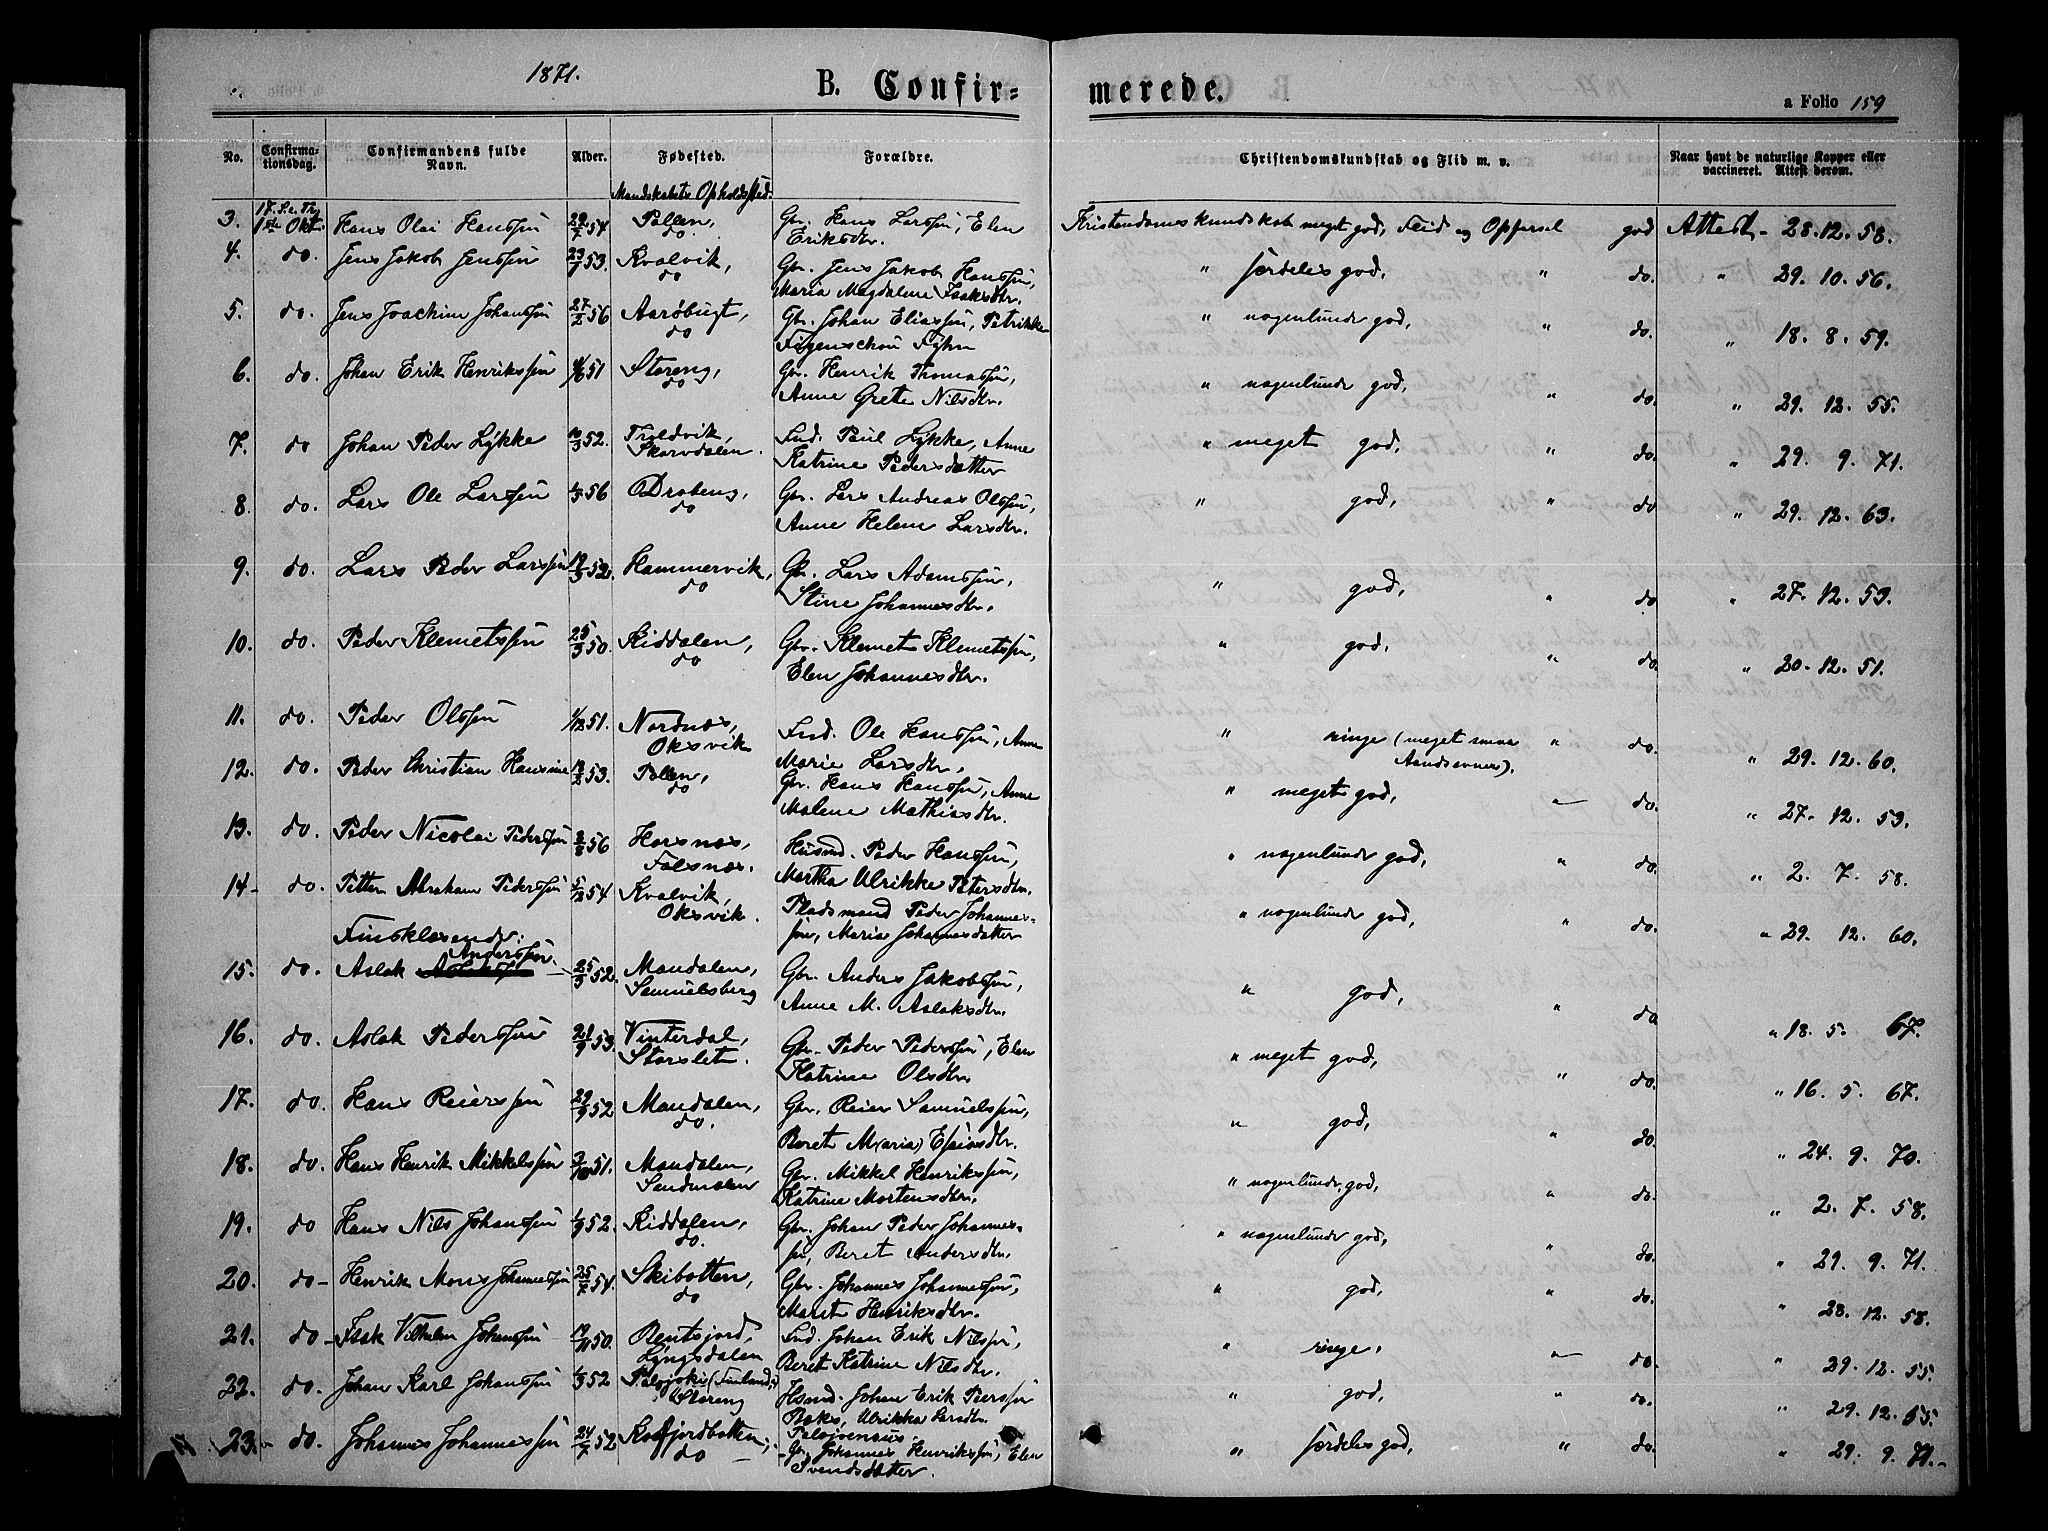 1871.
B. Confir-
merede.
a Folio 159
No. Confirma-tionsdag. Confirmandens fulde Navn. Alder. Fødested. Forældre. Christendomskundskab og Flid m. v. Naar havt de naturlige Kopper eller vaccineret. Attest derom.
Mandskabets Opholdssted.
3. 17. S. e. Tr. 1ste Okt. Hans Olai Hanssøn 29/7 54 Pollen, do Gbr. Hans Larssøn, Elen Eriksdtr. Kristendomskundskab meget god, Flid og Opførsel god Attest - 28. 12. 58.
4. do. Jens Jakob Jenssøn 23/7 53. Kvalvik, do Gbr. Jens Jakob Hanssøn, Maria Magdalene Isaksdtr. " særdeles god, " do. " 29. 10. 56.
5. do. Jens Joachim Johanssøn 27/2 56 Aarøbugt, do Gbr. Johan Eliassøn, Petrikke Figenschou Fyhn " nogenlunde god, " do. " 18. 8. 59.
6. do. Johan Erik Henrikssøn 51 Storeng, do Gbr. Henrik Thomassøn, Anne Grete Nilsdtr. " nogenlunde god, " do. " 29. 12. 55.
7. do Johan Peder Lykke 52. Troldvik, Skorvdalen. Ind. Paul Lykke, Anne Katrine Pedersdatter " meget god, " do. " 29. 9. 71.
8. do. Lars Ole Larssøn 56 Drateng, do Gbr. Lars Andreas Olssøn, Anne Helene Larsdtr. " god, " do " 29. 12. 63.
9. do. Lars Peder Larssøn 19/3 52. Hammervik, do Gbr. Lars Adamssøn, Stine Johannesdtr. " god, " do " 27. 12. 53.
10. do. Peder Klemetssøn 25/3 50. Kiddalen, do Gbr. Klemet Klemetssøn, Elen Johannesdtr. " god, " do. " 20. 12. 51.
11. do. Peder Olssøn 1/12 51. Nordnæs, Oksvik Ind. Ole Hanssøn, Anne Marie Larsdtr. " ringe (meget smaa Aandsevner). " do. " 29. 12. 60.
12. do. Peder Christian Hanssøn 53. Pollen, do Gbr. Hans Hanssøn, Anne Malene Mathiasdtr. " meget god, " do. " 27. 12. 53.
13. do. Peder Nicolai Pederssøn 56 Horsnæs, Falsnæs. Husmd. Peder Hanssøn, Martha Ulrikke Petersdtr. " nogenlunde god, " do. " 2. 7. 58.
14- do. Petter Abraham Pederssøn 5/12 54 Kvalvik, Oksvik. Pladsmand Peder Johannes-søn, Maria Johannesdatter " nogenlunde god, " do. " 29. 12. 60.
Finsklæsende:
15. do. Aslak Anderssøn. 25/3 52. Mandalen, Samuelsberg Gbr. Anders Jakobssøn, Anne M. Aslaksdtr. " god, " do " 18. 5. 67.
16. do. Aslak Pederssøn 21/9 53. Vinterdal, Storslet. Gbr. Peder Pederssøn, Elen Katrine Olsdtr. " meget god, " do. " 16. 5. 67.
17. do. Hans Reierssøn 29/9 52 Mandalen, do. Gbr. Reier Samuelssøn, Beret M(aria) Esaiasdtr. " god, " do. " 24. 9. 70.
18. do. Hans Henrik Mikkelssøn 3/10 51. Mandalen, Sandmælen Gbr. Mikkel Henrikssøn, Katrine Mortensdtr. " nogenlunde god, " do. " 2. 7. 58.
19. do Hans Nils Johanssøn 52. Kiddalen, do. Gbr. Johan Peder Johannes-sø, Beret Andersdtr. " nogenlunde god, " do. " 29. 9. 71.
20. do- Henrik Mons Johannessøn 25/7 54. Skibotten, do Gbr. Johannes Johannessøn, Marit Henriksdtr. " god, " do. " 28. 12. 58.
21. do- Isak Vilhelm Johanssøn 19/11 50. Bentsjord, Lyngsdalen Ind. Johan Erik Nilssøn, Beret Katrine Nilsdtr. " ringe, " do. " 29. 12. 55.
22. do. Johan Karl Johanssøn 52 Palojoki (Finland,) Storeng Hsmd. Johan Erik Perssøn Baks, Ulrikka Larsdtr. Palojoensuu. " god, " do. " 29. 12. 55.
23. do. Johannes Johannessøn 24/7 52 Kafjordbotten, do - Gbr. Johannes Henrikssøn, Elen Svendsdatter. " særdeles god, " do. " 29. 9. 71.-